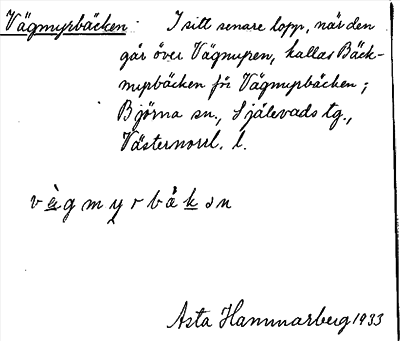 Vägmyrbäcken. I sitt senare lopp, när den
går över Vägmyren, kallas Bäck-
myrbäcken för Vägmyrbäcken;
Björna sn., Själevads tg.,
Västernorrl. l.
vägmyrbäkən
Asta Hammarberg 1933